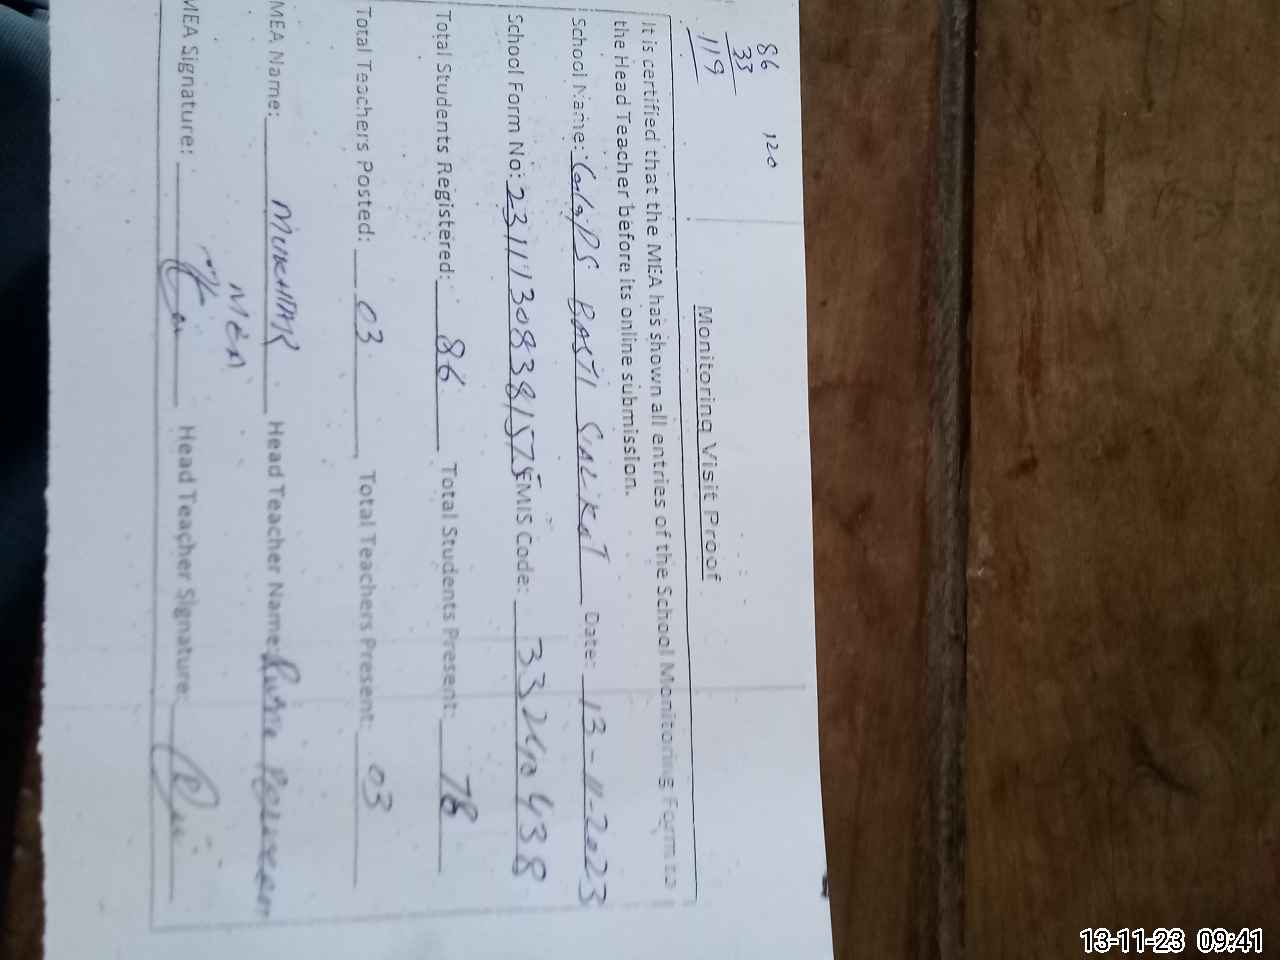 86
33
119
120
Monitoring Visit Proof
It is certified that the MEA has shown all entries of the School Monitoring Form to
the Head Teacher before its online submission.
School Name: BASTI Date: 13-11-2023
School Form No: 23111308381575 EMIS Code: 33240438
Total Students Registered: 86 Total Students Present: 78
Total Teachers Posted: 03 Total Teachers Present: 03
MEA Name: MUKHTAR Head Teacher Name:
MEA
MEA Signature: Head Teacher Signature:
13-11-23 09:41